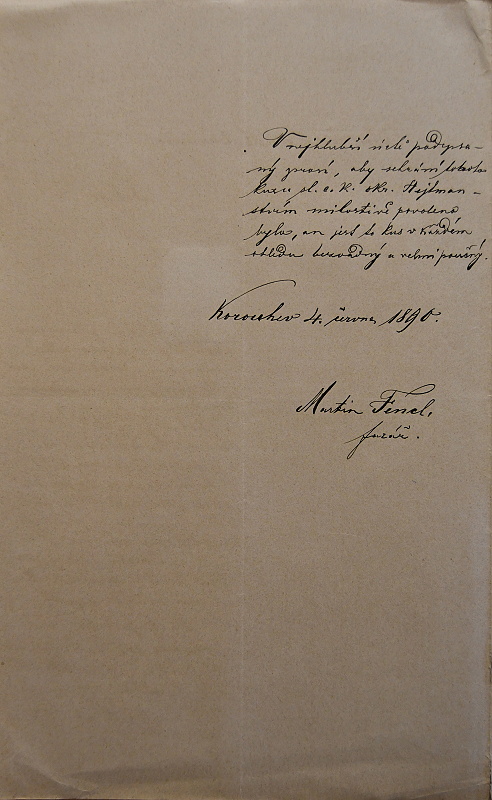 V nejhlubší úctě podepsa-
ný prosí, aby sehrání tohoto
kusu sl. c. k. okr. Hejtman-
stvím milostivě povoleno
bylo, an jest to kus v každém
ohledu bezvadný a velmi poučný.
4. června 1890.
Martin Fencl,
farář.